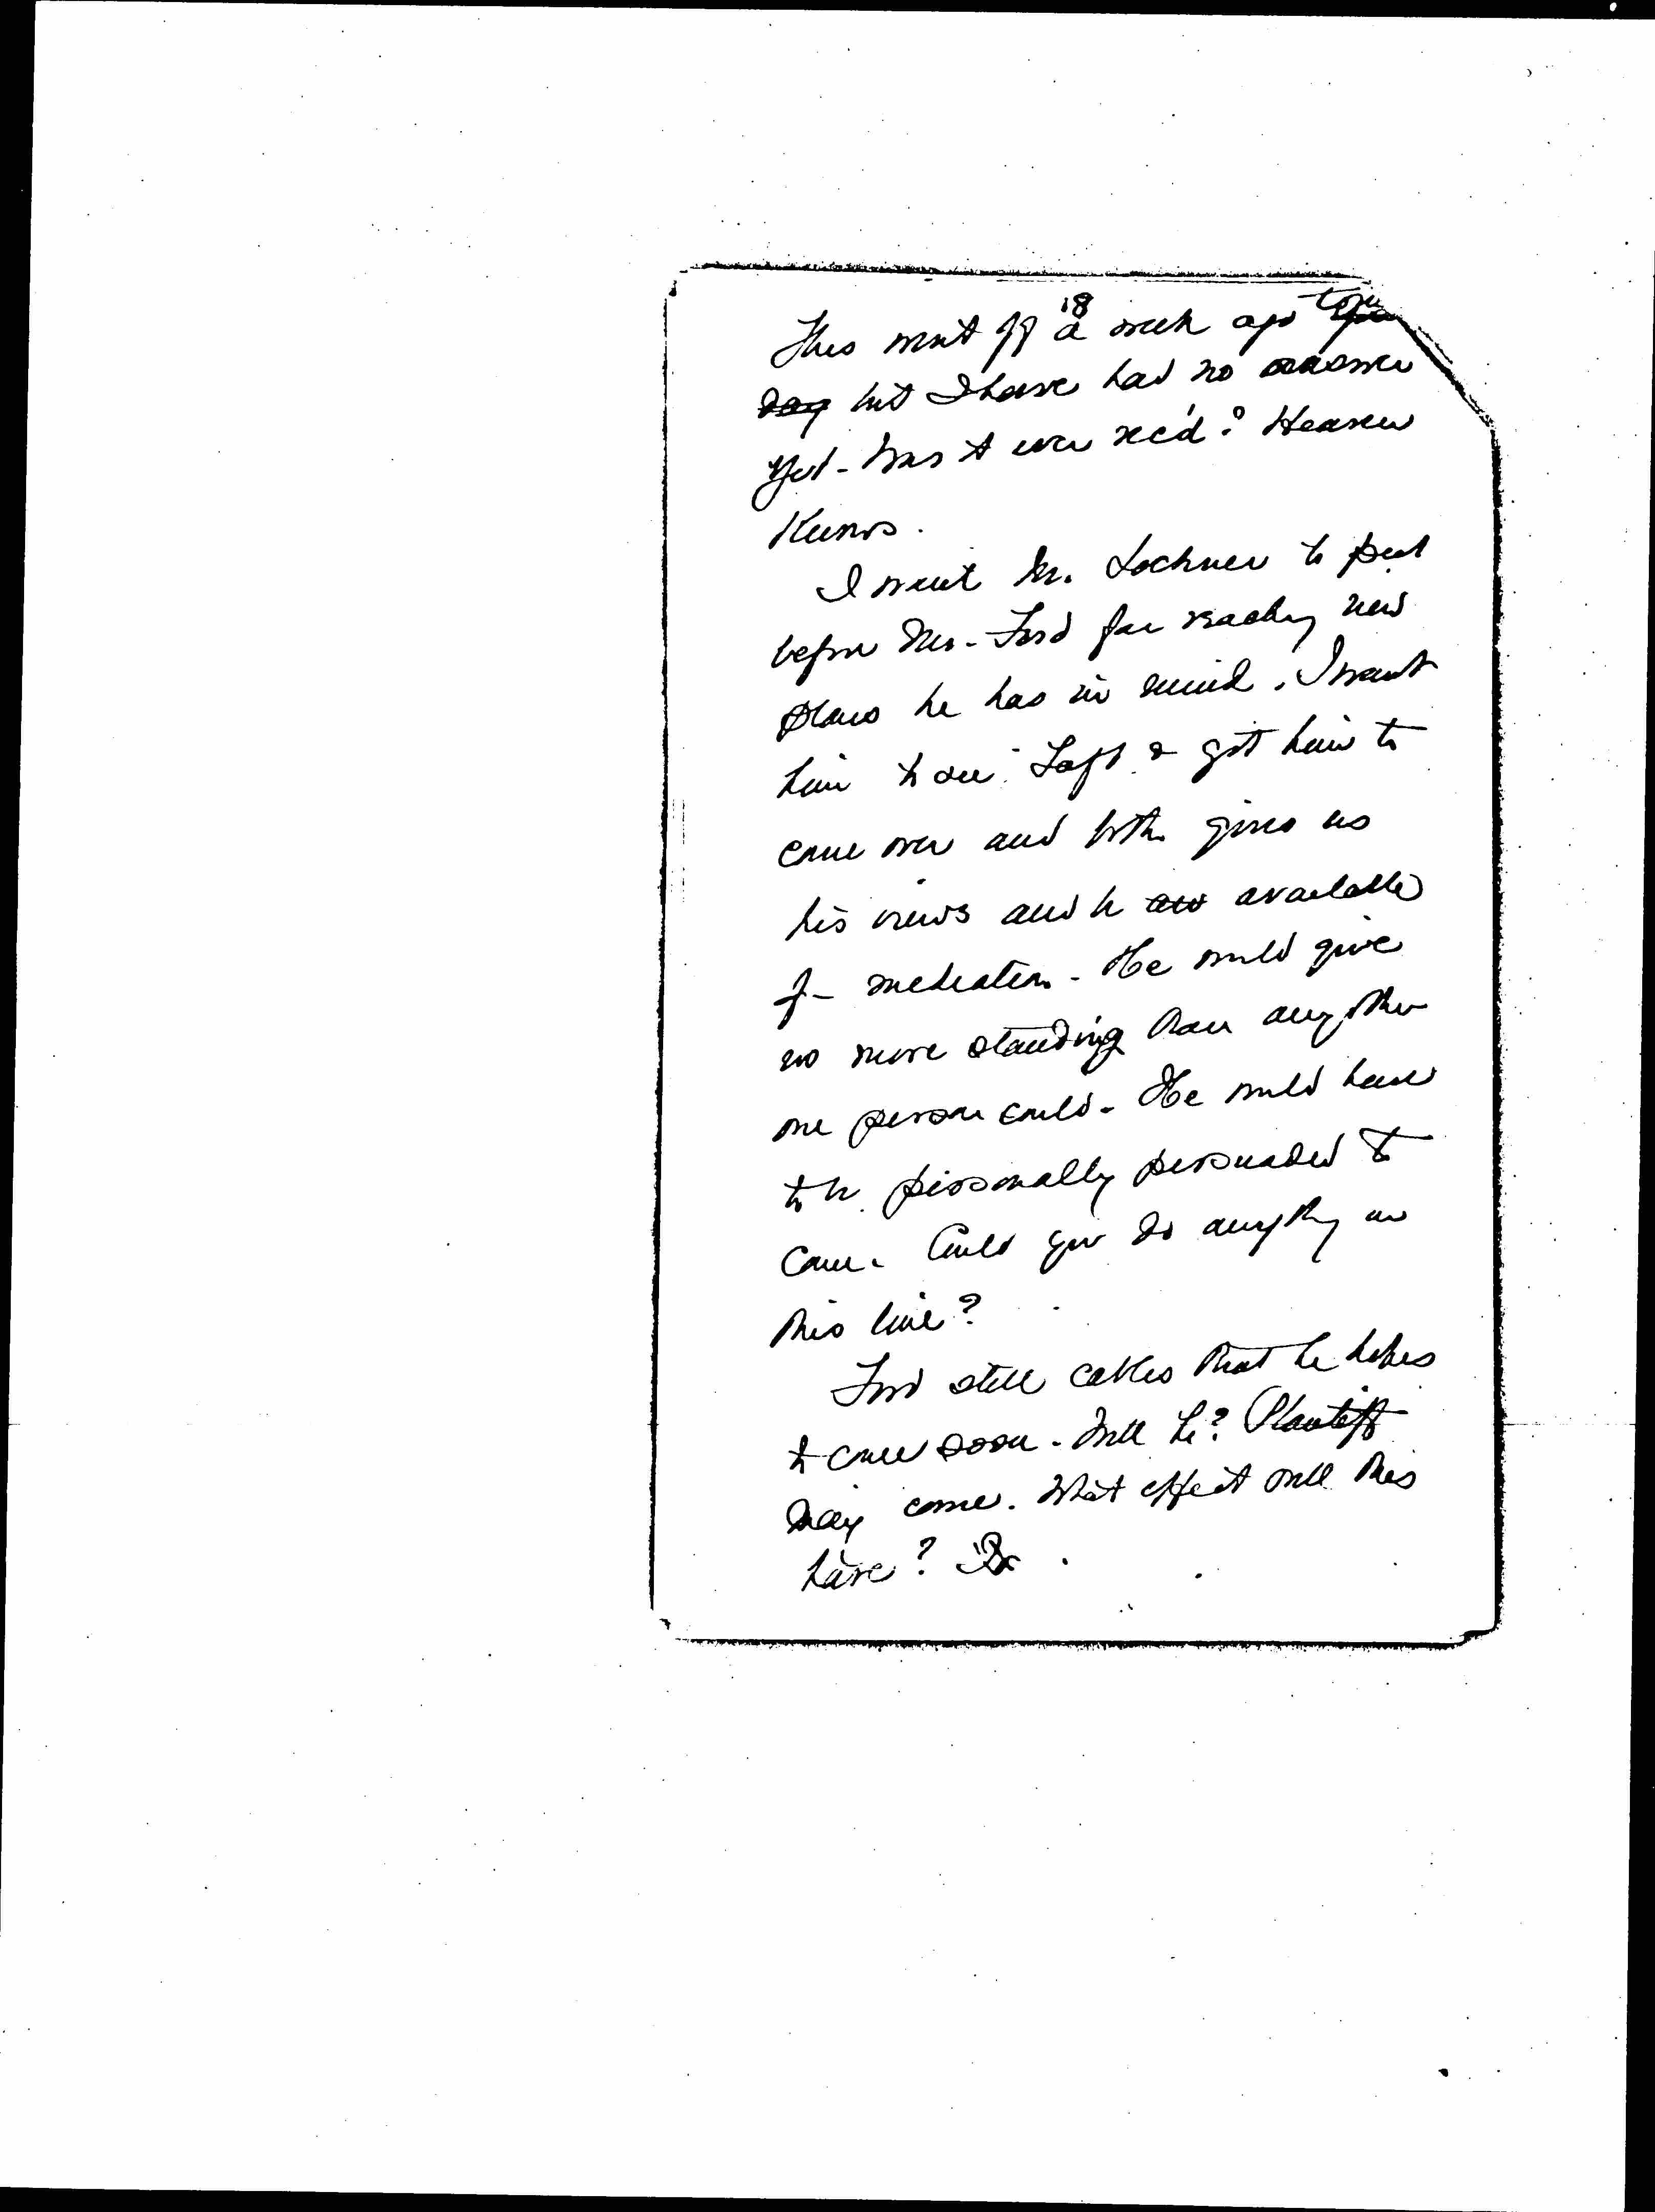 This went off a week ago
day but I have had no answer
yet - Was it ever rec'd? Heaven
Knows.
I want Mr. Lochner to put
before Mr. Ford far reaching new
plans he has in mind. I want
him to see Taft & get him to
come over and both gives us
his views and be available
for mediation - He would give
us more standing than any other
one person could - He would have
to be personally persuaded to
come. Could you do anything on
this line?
Ford still cables that he hopes
to come soon - Will he? Plantiff
may come. What effect will this
have?